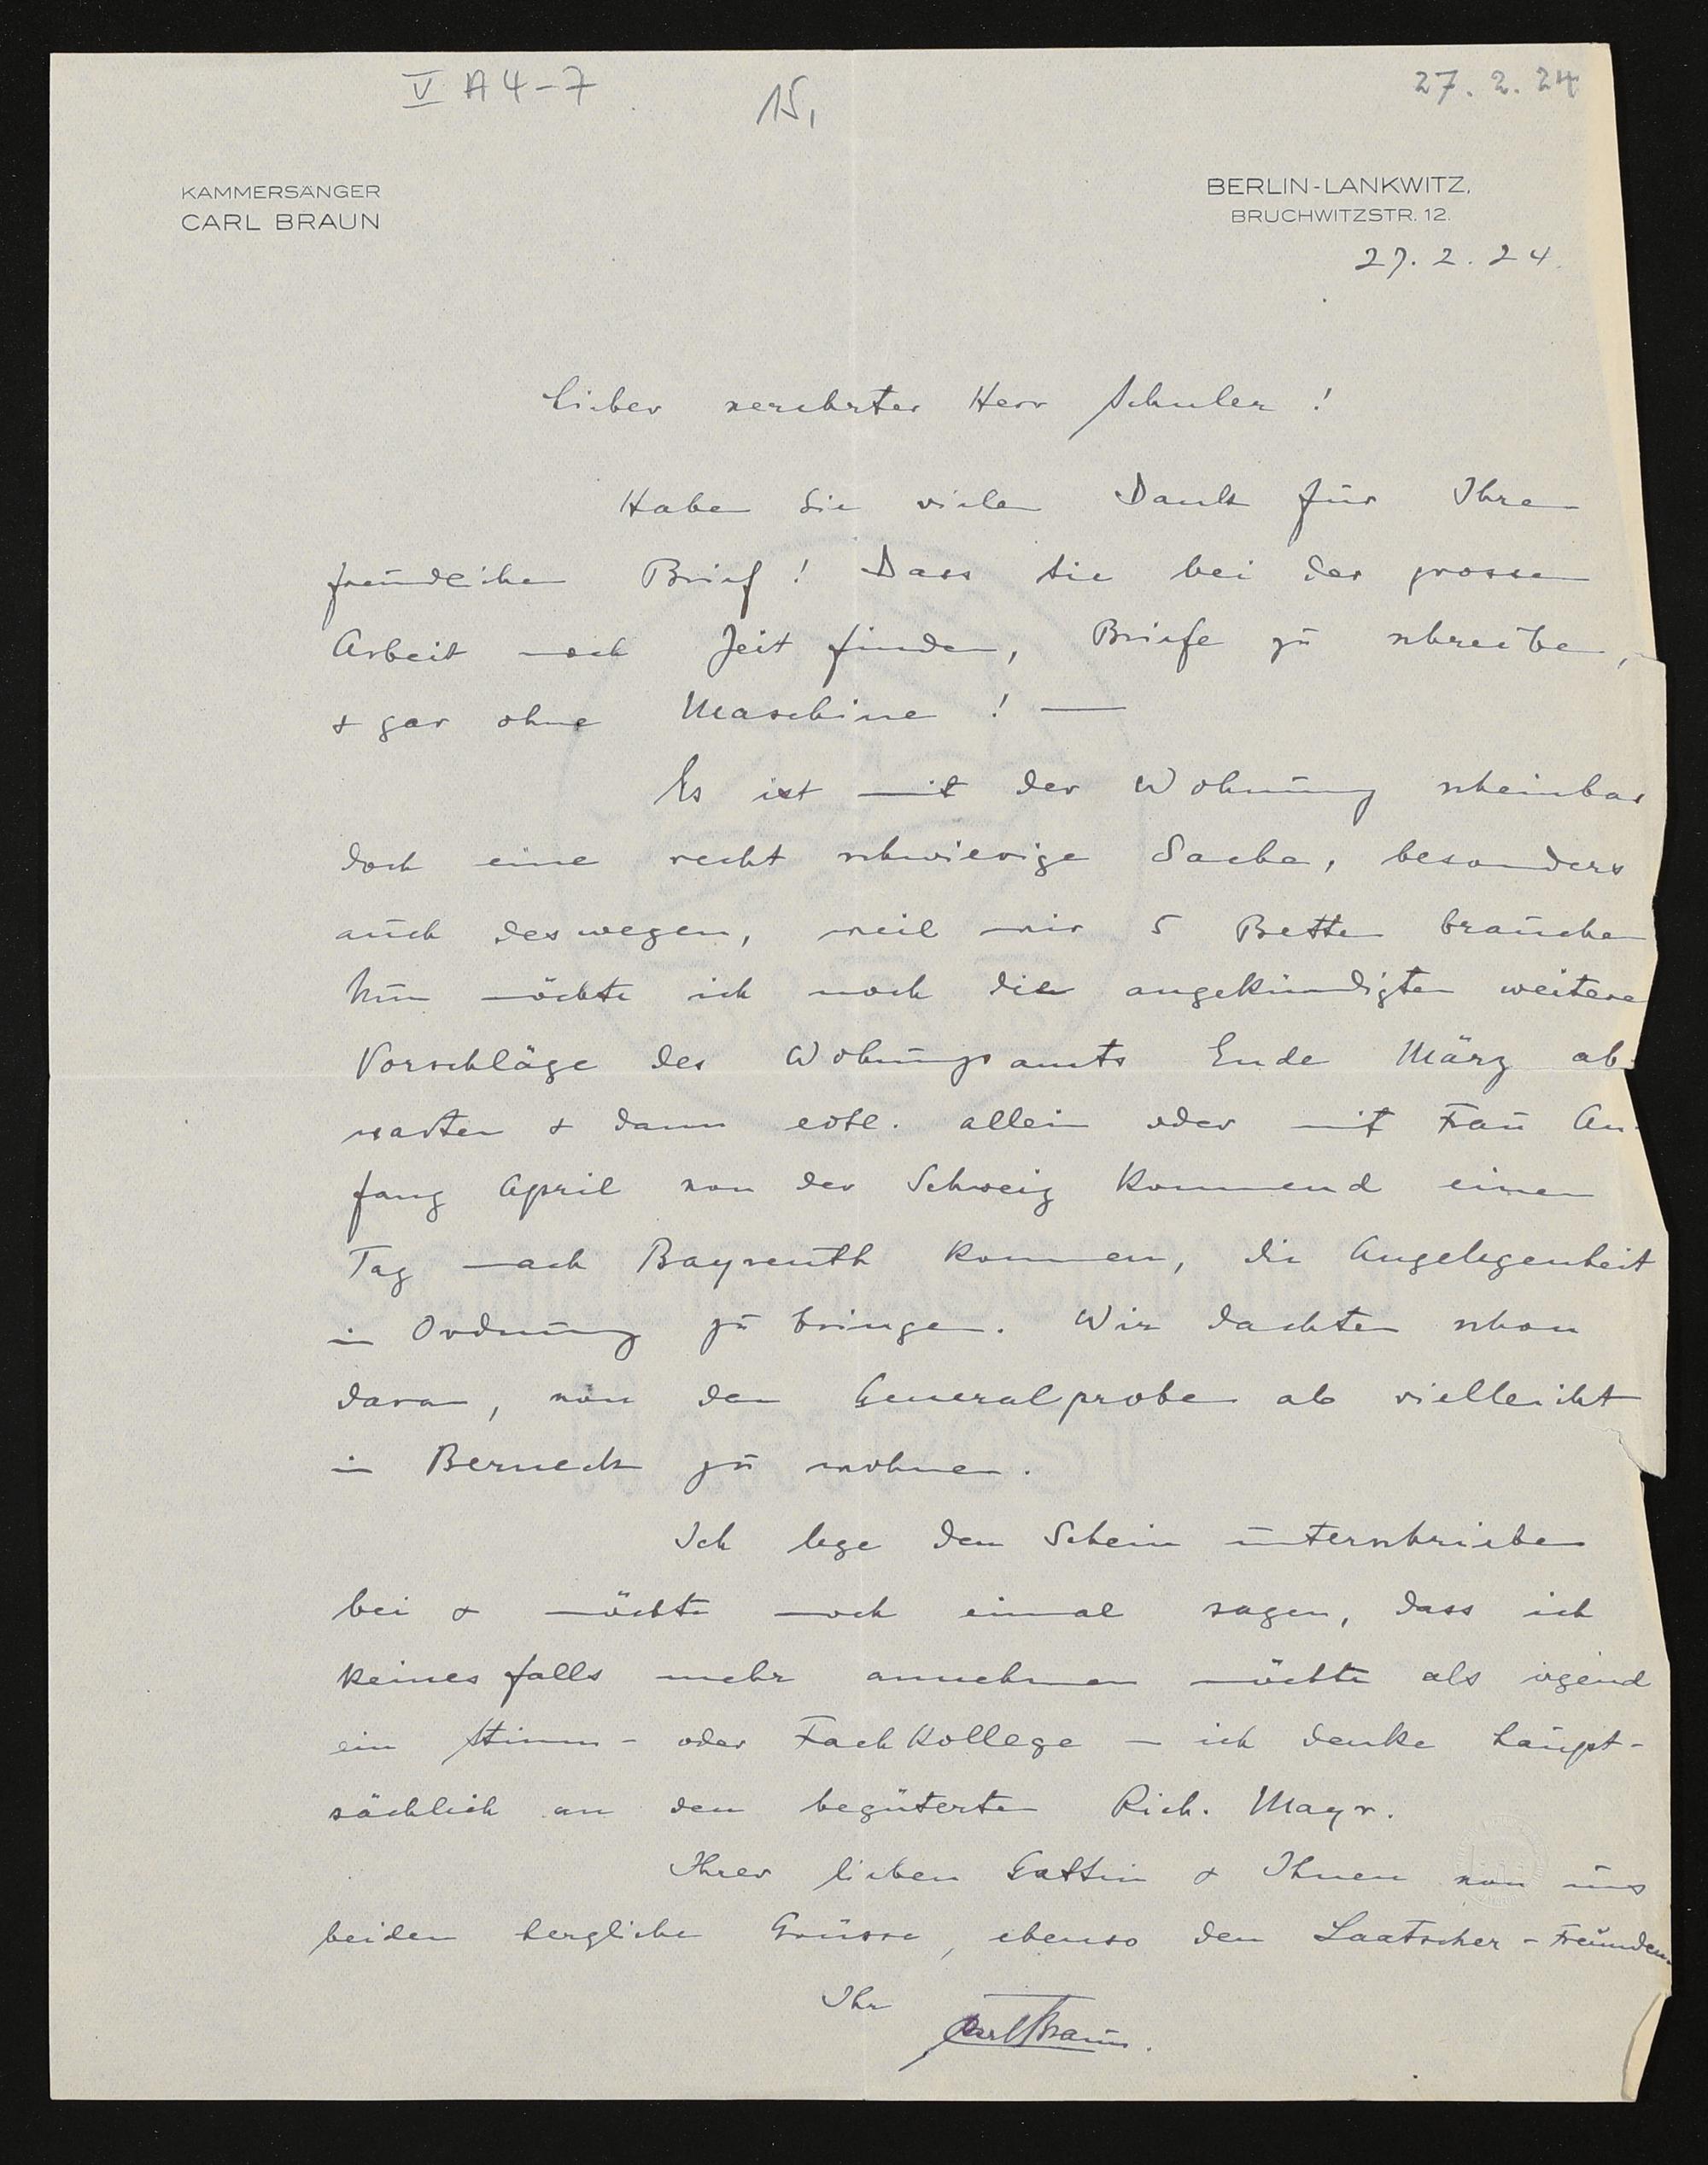 V A 4-7
15,
27. 2. 24
KAMMERSÄNGER
CARL BRAUN
BERLIN-LANKWITZ,
BRUCHWITZSTR. 12.
27. 2. 24.
Lieber verehrter Herr Schuler!
Haben Sie vielen Dank für Ihren
freundlichen Brief! Dass Sie bei der grossen
Arbeit noch Zeit finden, Briefe zu schreiben,
& gar ohne Maschine! —
Es ist mit der Wohnung scheinbar
doch eine recht schwierige Sache, besonders
auch deswegen, weil wir 5 Betten brauchen
Nun möchte ich noch die angekündigten weiteren
Vorschläge des Wohnungsamts Ende März ab-
warten & dann evtl. allein oder mit Frau An-
fang April von der Schweiz kommend einen
Tag nach Bayreuth kommen, die Angelegenheit
in Ordnung zu bringen. Wir dachten schon
daran, von den Generalproben ab vielleicht
in Berneck zu wohnen.
Ich lege den Schein unterschrieben
bei & möchte noch einmal sagen, dass ich
keinesfalls mehr annehmen möchte als irgend
ein Stimm- oder Fachkollege – ich denke haupt-
sächlich an den begüterten Rich. Mayr.
Ihrer lieben Gattin & Ihnen von uns
beiden herzliche Grüsse, ebenso den Laatscher-Freunden.
Ihr
Carl Braun.